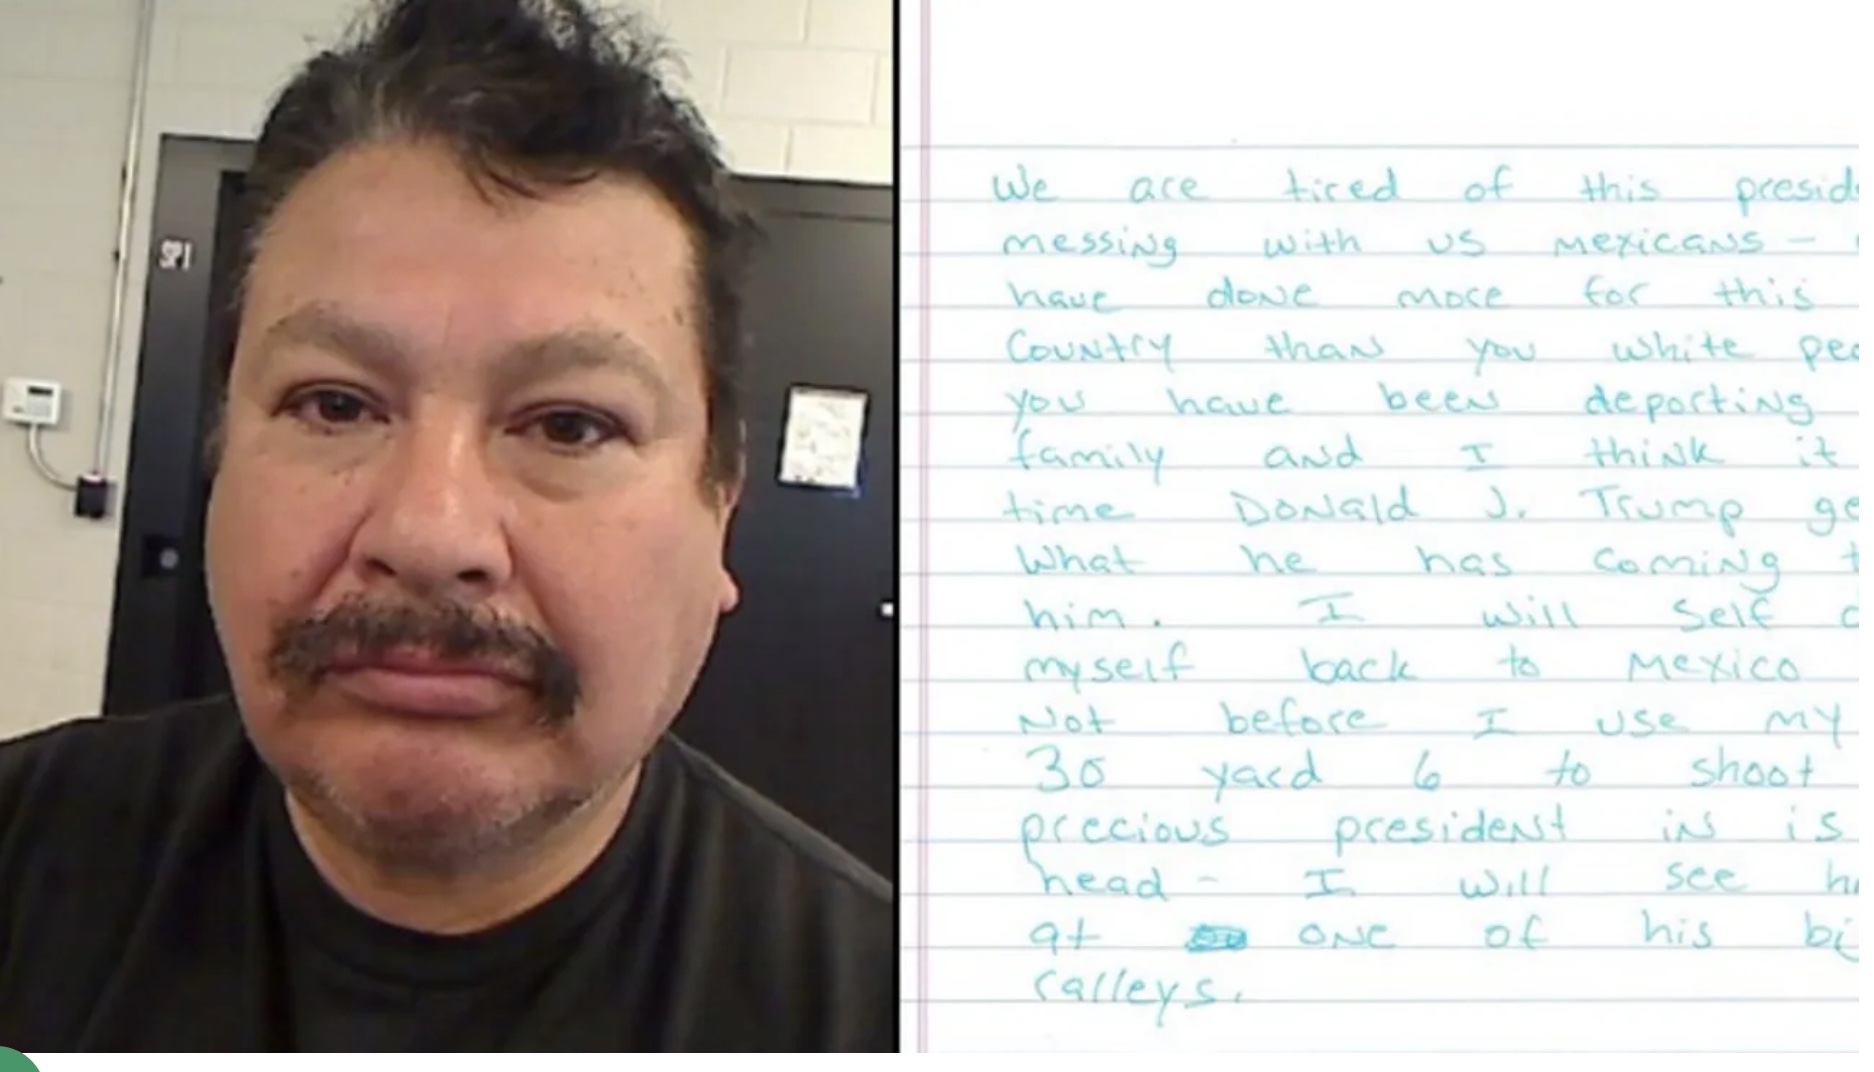 SPI
We are tired of this presid
messing with us mexicans -
have done more for this
Country than you white peo
you have been deporting
family and I think it
time Donald J. Trump ge
What he has coming t
him. I will self d
myself back to Mexico
Not before I use my
30 yard 6 to shoot
precious president in is
head - I will see hi
at one of his bi
ralleys.